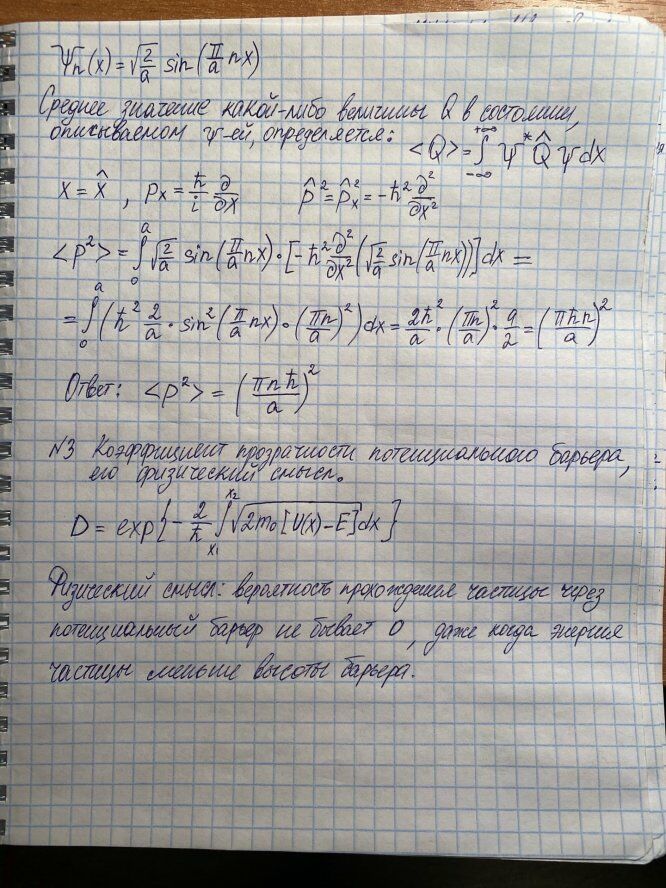 Ψn(x) = √(2/a) sin(π/a nx)
Среднее значение какой-либо величины Q в состоянии,
описываемом ψ-ей, определяется: <Q> = ∫_{-∞}^{+∞} Ψ* Q̂ Ψ dx
x = x̂ , p̂x = ħ/i ∂/∂x p̂² = p̂x² = -ħ² ∂²/∂x²
<p²> = ∫_0^a √(2/a) sin(π/a nx) · [-ħ² ∂²/∂x² (√(2/a) sin(π/a nx))] dx =
= ∫_0^a (ħ² 2/a · sin²(π/a nx) · (πn/a)²) dx = 2ħ²/a · (πn/a)² · a/2 = (πħn/a)²
Ответ: <p²> = (πnħ/a)²
№3 Коэффициент прозрачности потенциального барьера,
его физический смысл.
D = exp{-2/ħ ∫_{x1}^{x2} √(2m₀[U(x)-E]) dx}
Физический смысл: вероятность прохождения частицы через
потенциальный барьер не бывает 0, даже когда энергия
частицы меньше высоты барьера.